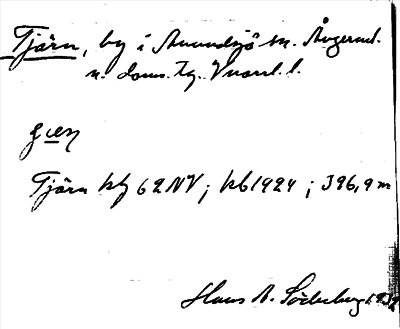 Tjärn, by i Anundsjö sn. Ångerml.
n. doms. tg. Vnorrl. l.
Tjärn kbg 62NV; kb1924; 396,9 m
Hans A. Söderberg 1932